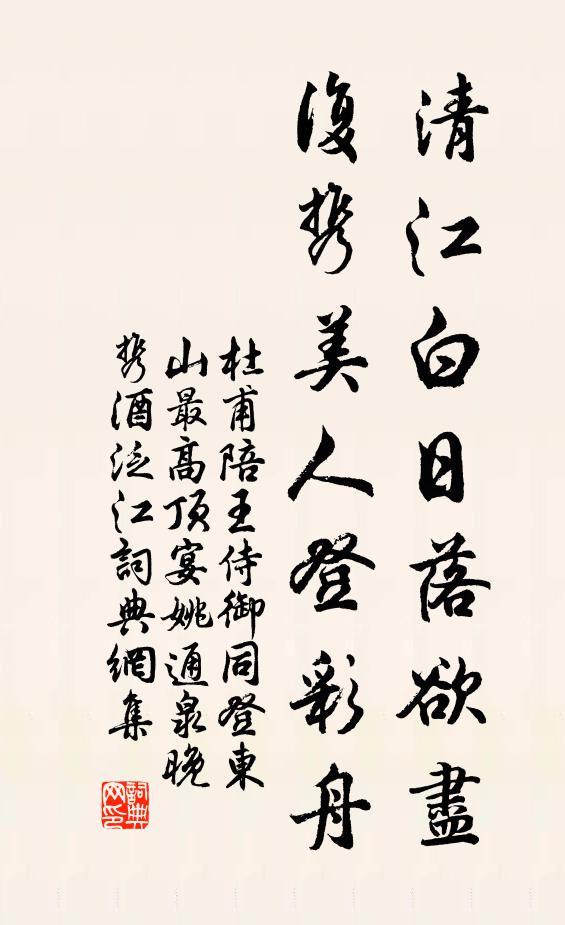 清江白日落欲盡
復携美人登彩舟
杜甫陪王侍御同登東
山最高頂宴姚通泉晚
携酒泛江詞典網集
詞典
网印